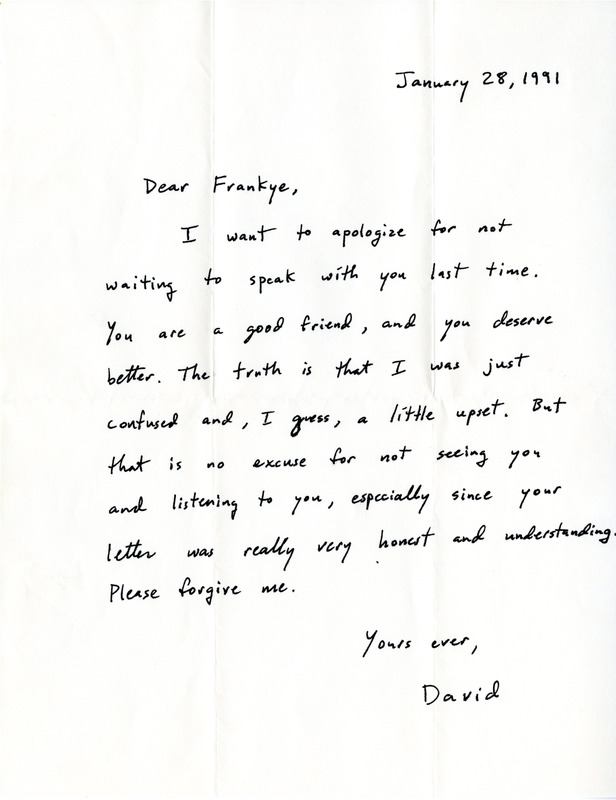 January 28, 1991
Dear Frankye,
I want to apologize for not
waiting to speak with you last time.
You are a good friend, and you deserve
better. The truth is that I was just
confused and, I guess, a little upset. But
that is no excuse for not seeing you
and listening to you, especially since your
letter was really very honest and understanding.
Please forgive me.
Yours ever,
David